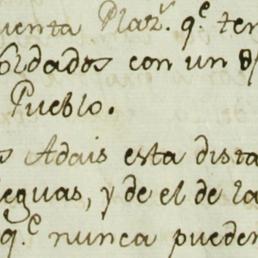 uenta Plaz.ˢ q.ᵉ ten
oldados con un
Pueblo.
s Adais esta dista
leguas, y de el de la
q.ᵉ nunca pueden